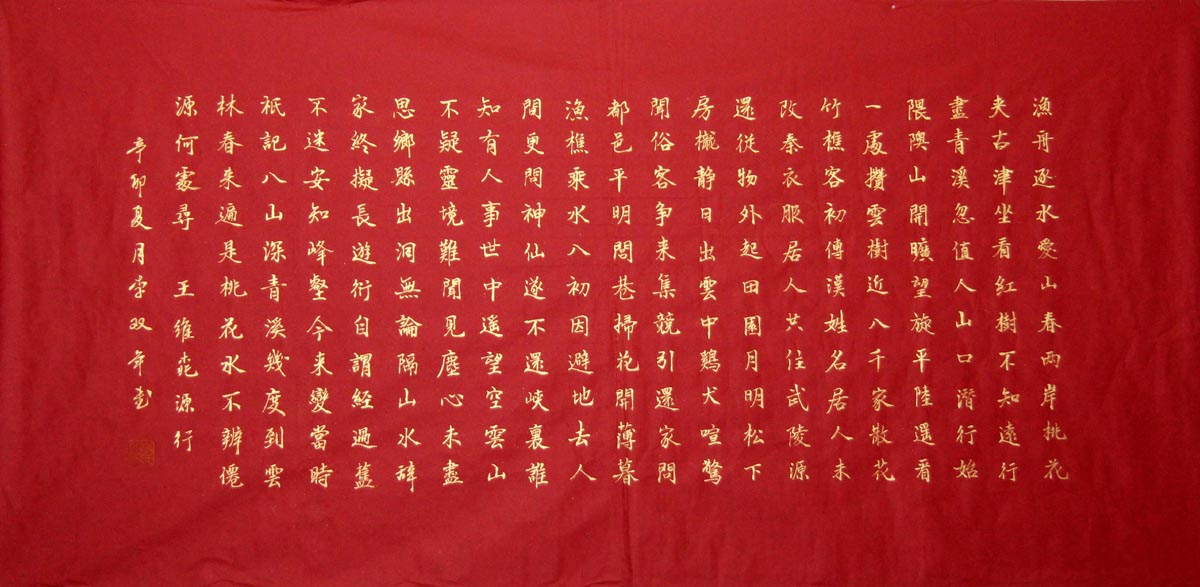 漁舟逐水愛山春兩岸桃花
夹古津坐看红樹不知遠行
盡青溪忽值人山口潛行始
隈隩山開曠望旋平陸遥看
一處攢雲樹近入千家散花
竹樵客初傳漢姓名居人未
改秦衣服居人共住武陵源
還從物外起田園月明松下
房櫳静日出雲中鷄犬喧驚
聞俗客争来集競引還家問
都邑平明閭巷掃花開薄暮
漁樵乘水入初因避地去人
間更問神仙遂不還峽裏誰
知有人事世中遥望空雲山
不疑靈境難聞見塵心未盡
思鄉縣出洞無論隔山水辭
家終擬長遊衍自謂經過舊
不迷安知峰壑今来變當時
祇記入山深青溪幾度到雲
林春来遍是桃花水不辨僊
源何處尋 王維桃源行
辛卯夏月李双年书